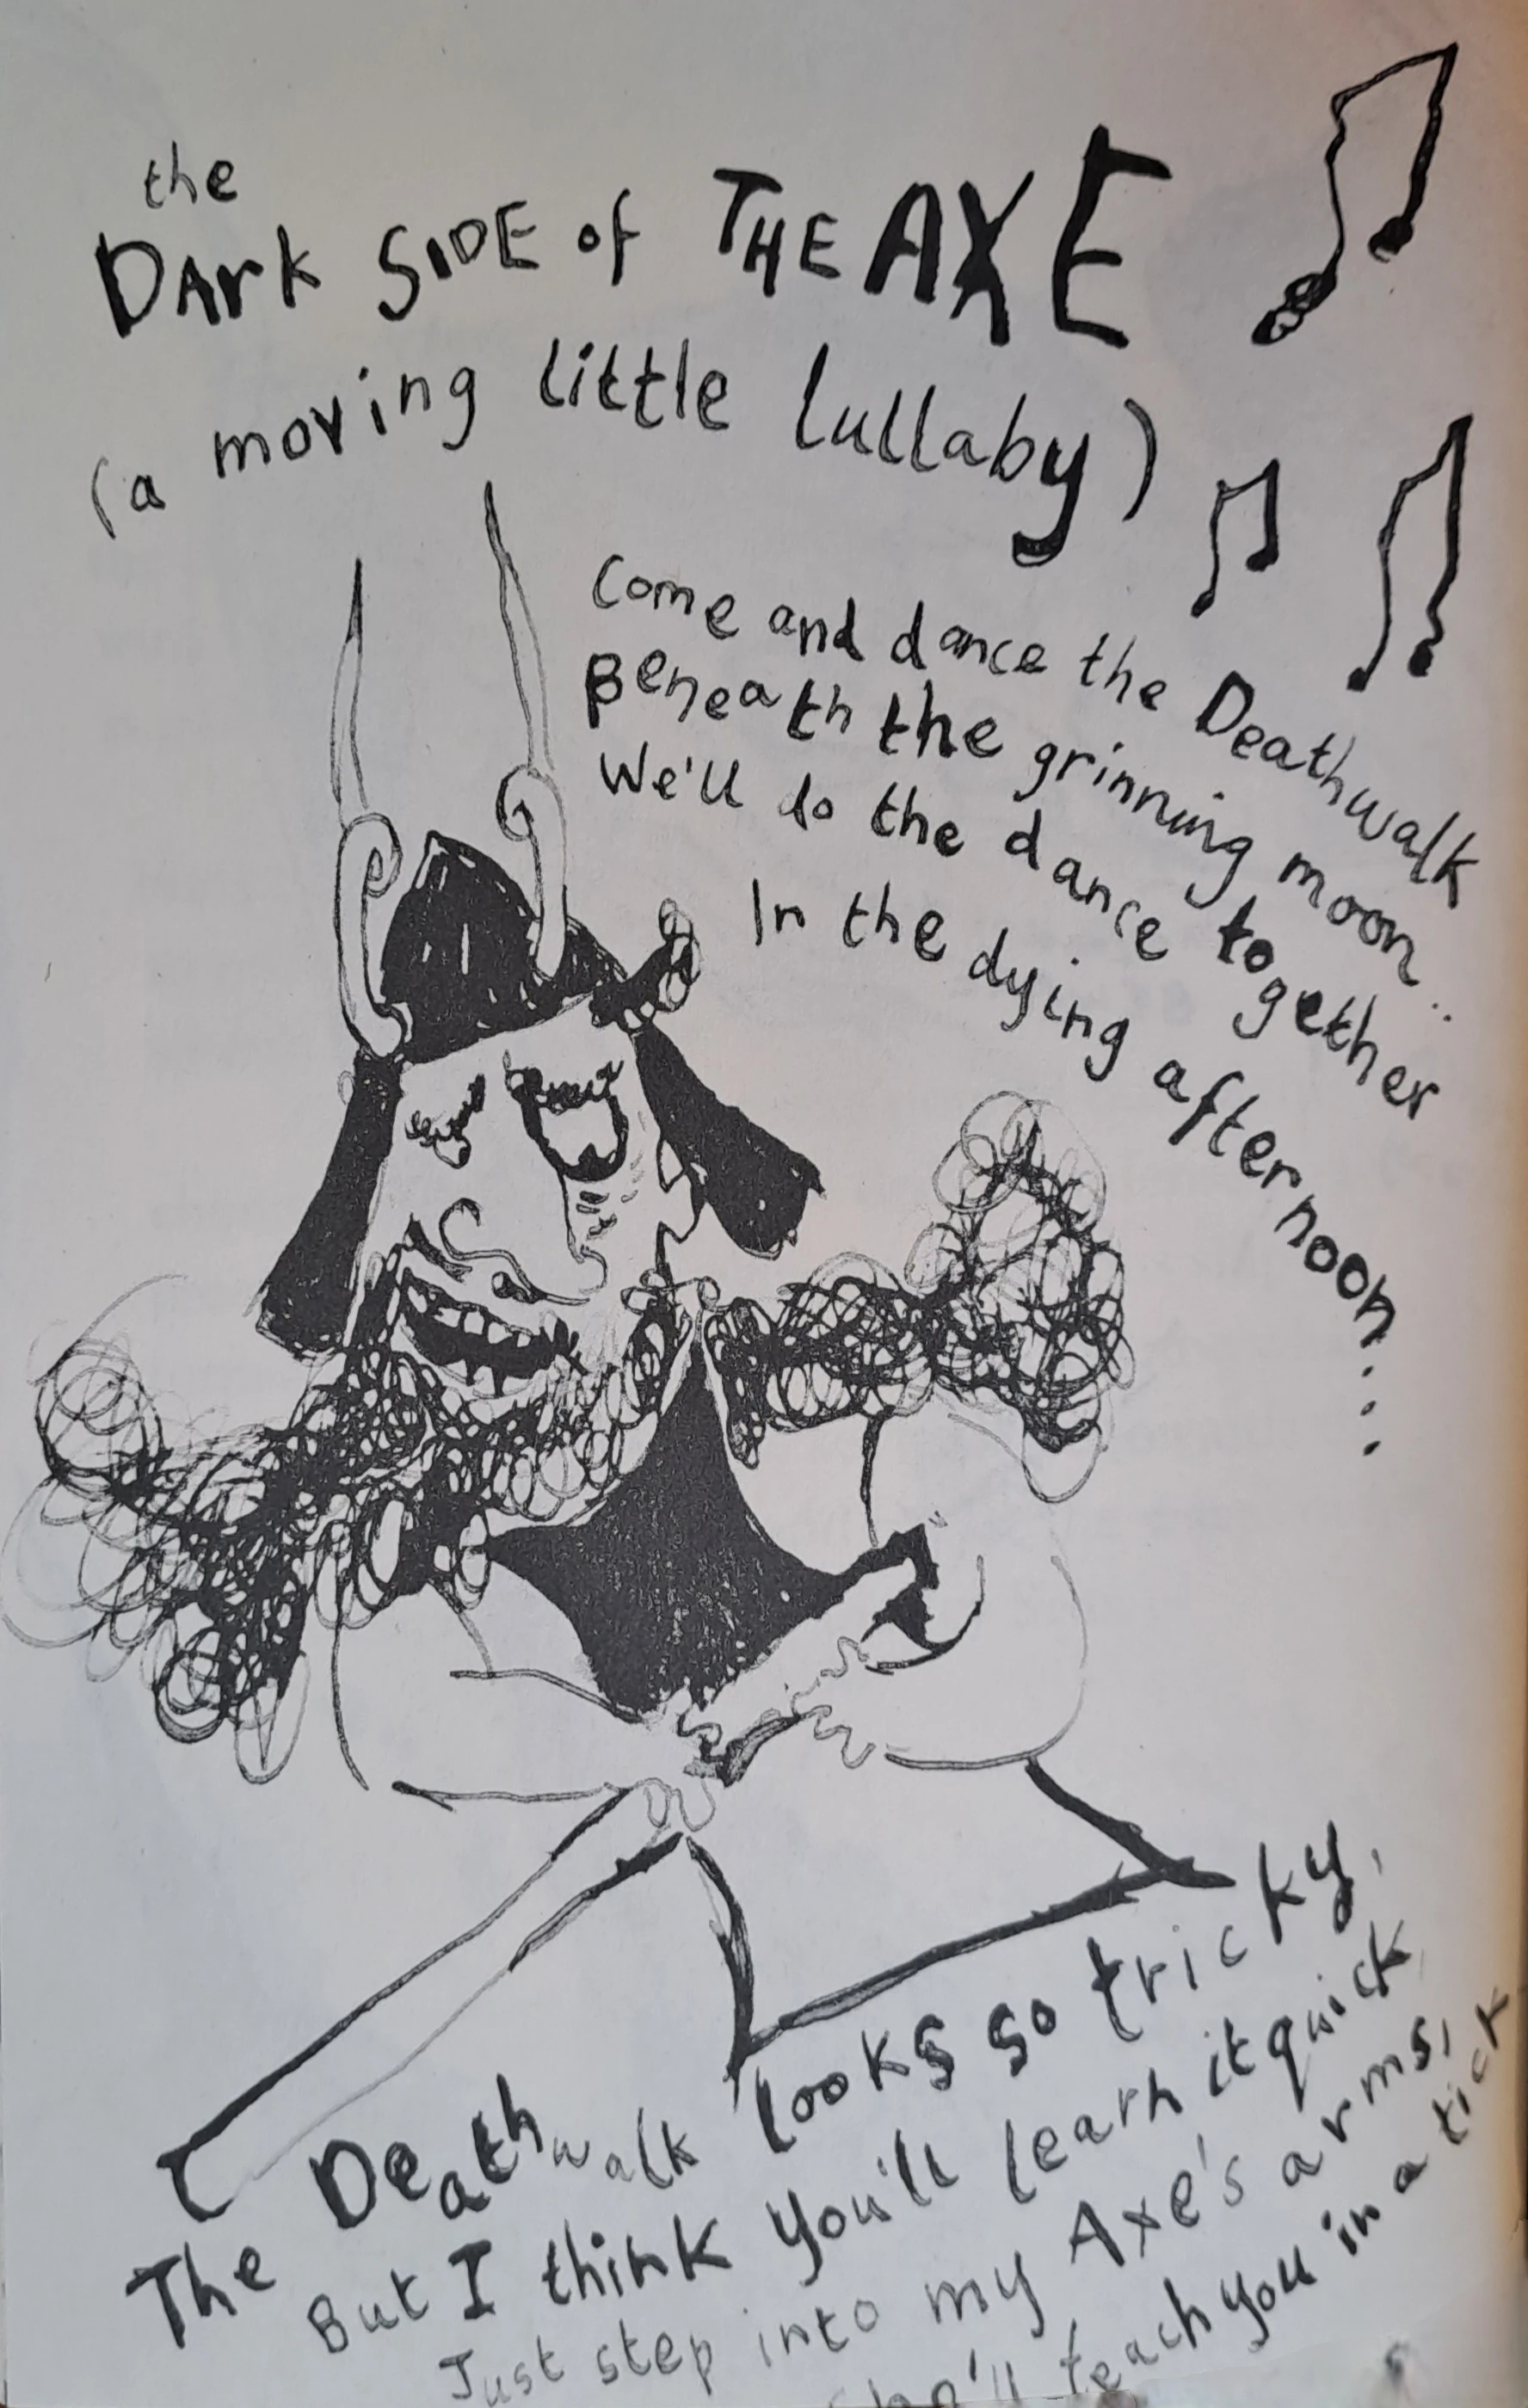 the
DARK SIDE of THE AXE
(a moving little lullaby)
Come and dance the Deathwalk
Beneath the grinning moon..
We'll do the dance together
In the dying afternoon...
The Deathwalk looks so tricky,
But I think you'll learn it quick
Just step into my Axe's arms,
She'll teach you in a tick